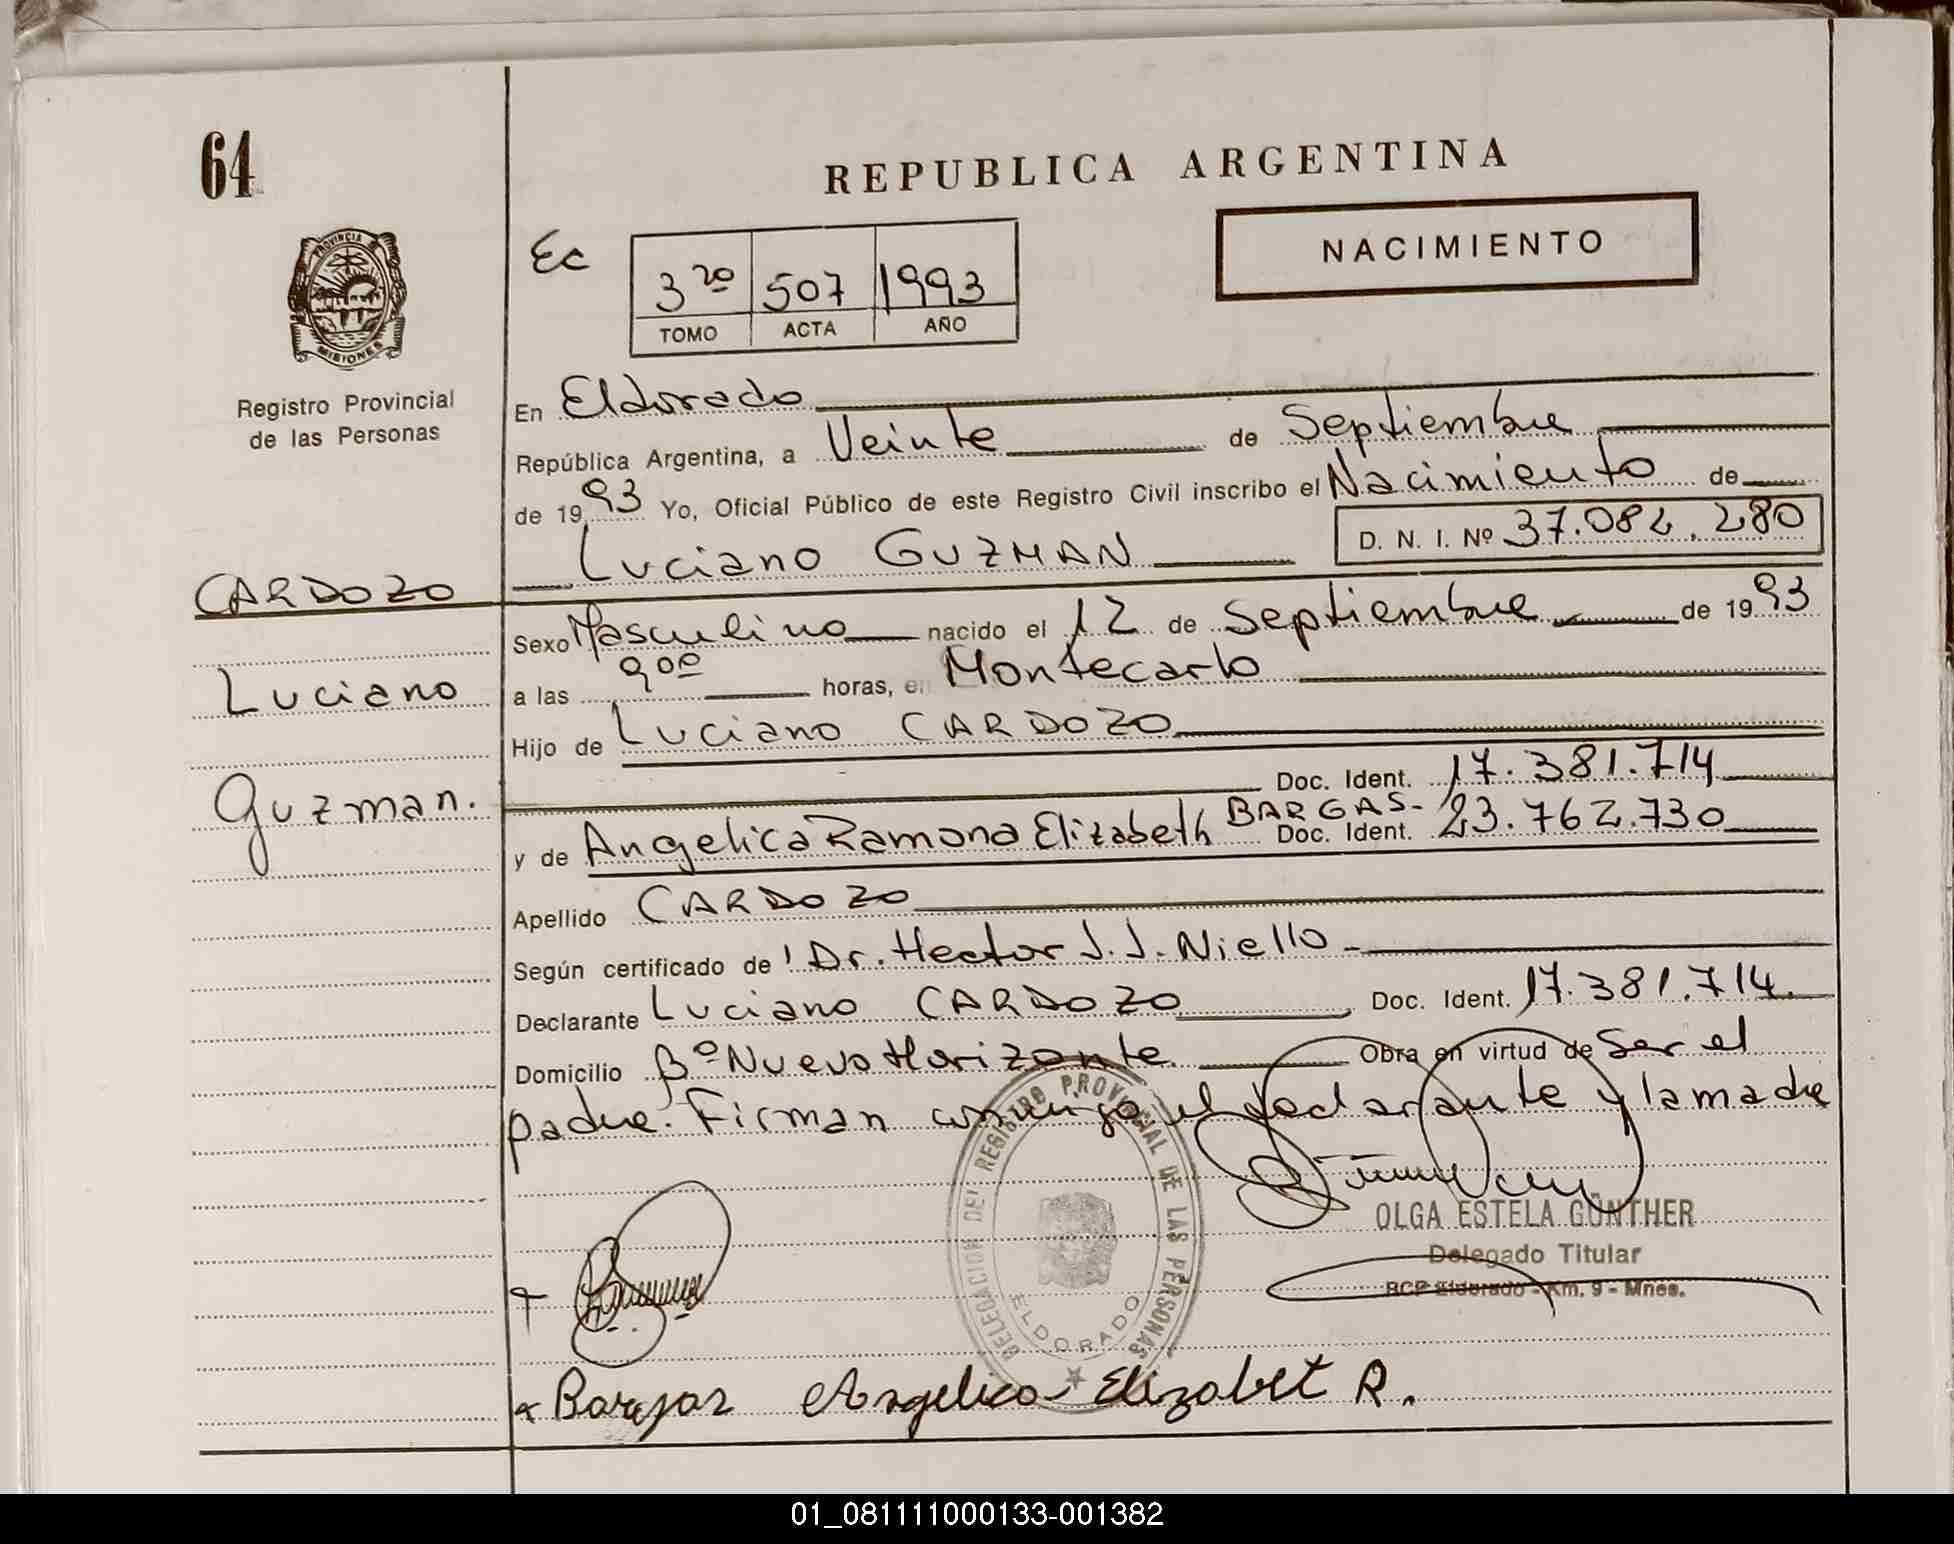 64
REPUBLICA ARGENTINA
NACIMIENTO
Ec
3ro 507 1993
TOMO ACTA AÑO
PROVINCIA DE MISIONES
Registro Provincial
de las Personas
CARDOZO
Luciano
Guzman.
En Eldorado
República Argentina, a Veinte de Septiembre
de 1993 Yo, Oficial Público de este Registro Civil inscribo el Nacimiento de
Luciano GUZMAN D. N. I. Nº 37.082.280
Sexo Masculino nacido el 12 de Septiembre de 1993
a las 9ºº horas, en Montecarlo
Hijo de Luciano CARDOZO
Doc. Ident. 17.381.714
y de Angelica Ramona Elizabeth BARGAS- Doc. Ident. 23.762.730
Apellido CARDOZO
Según certificado de Dr. Hector J. J. Niello -
Declarante Luciano CARDOZO Doc. Ident. 17.381.714.
Domicilio Bº Nuevo Horizonte Obra en virtud de ser el
padre. Firman conmigo el declarante y la madre
DELEGACION DEL REGISTRO PROVINCIAL DE LAS PERSONAS
ELDORADO
OLGA ESTELA GÜNTHER
Delegado Titular
RCP Eldorado - Km. 9 - Mnes.
Bargas Angelica Elizabet R.
01_081111000133-001382